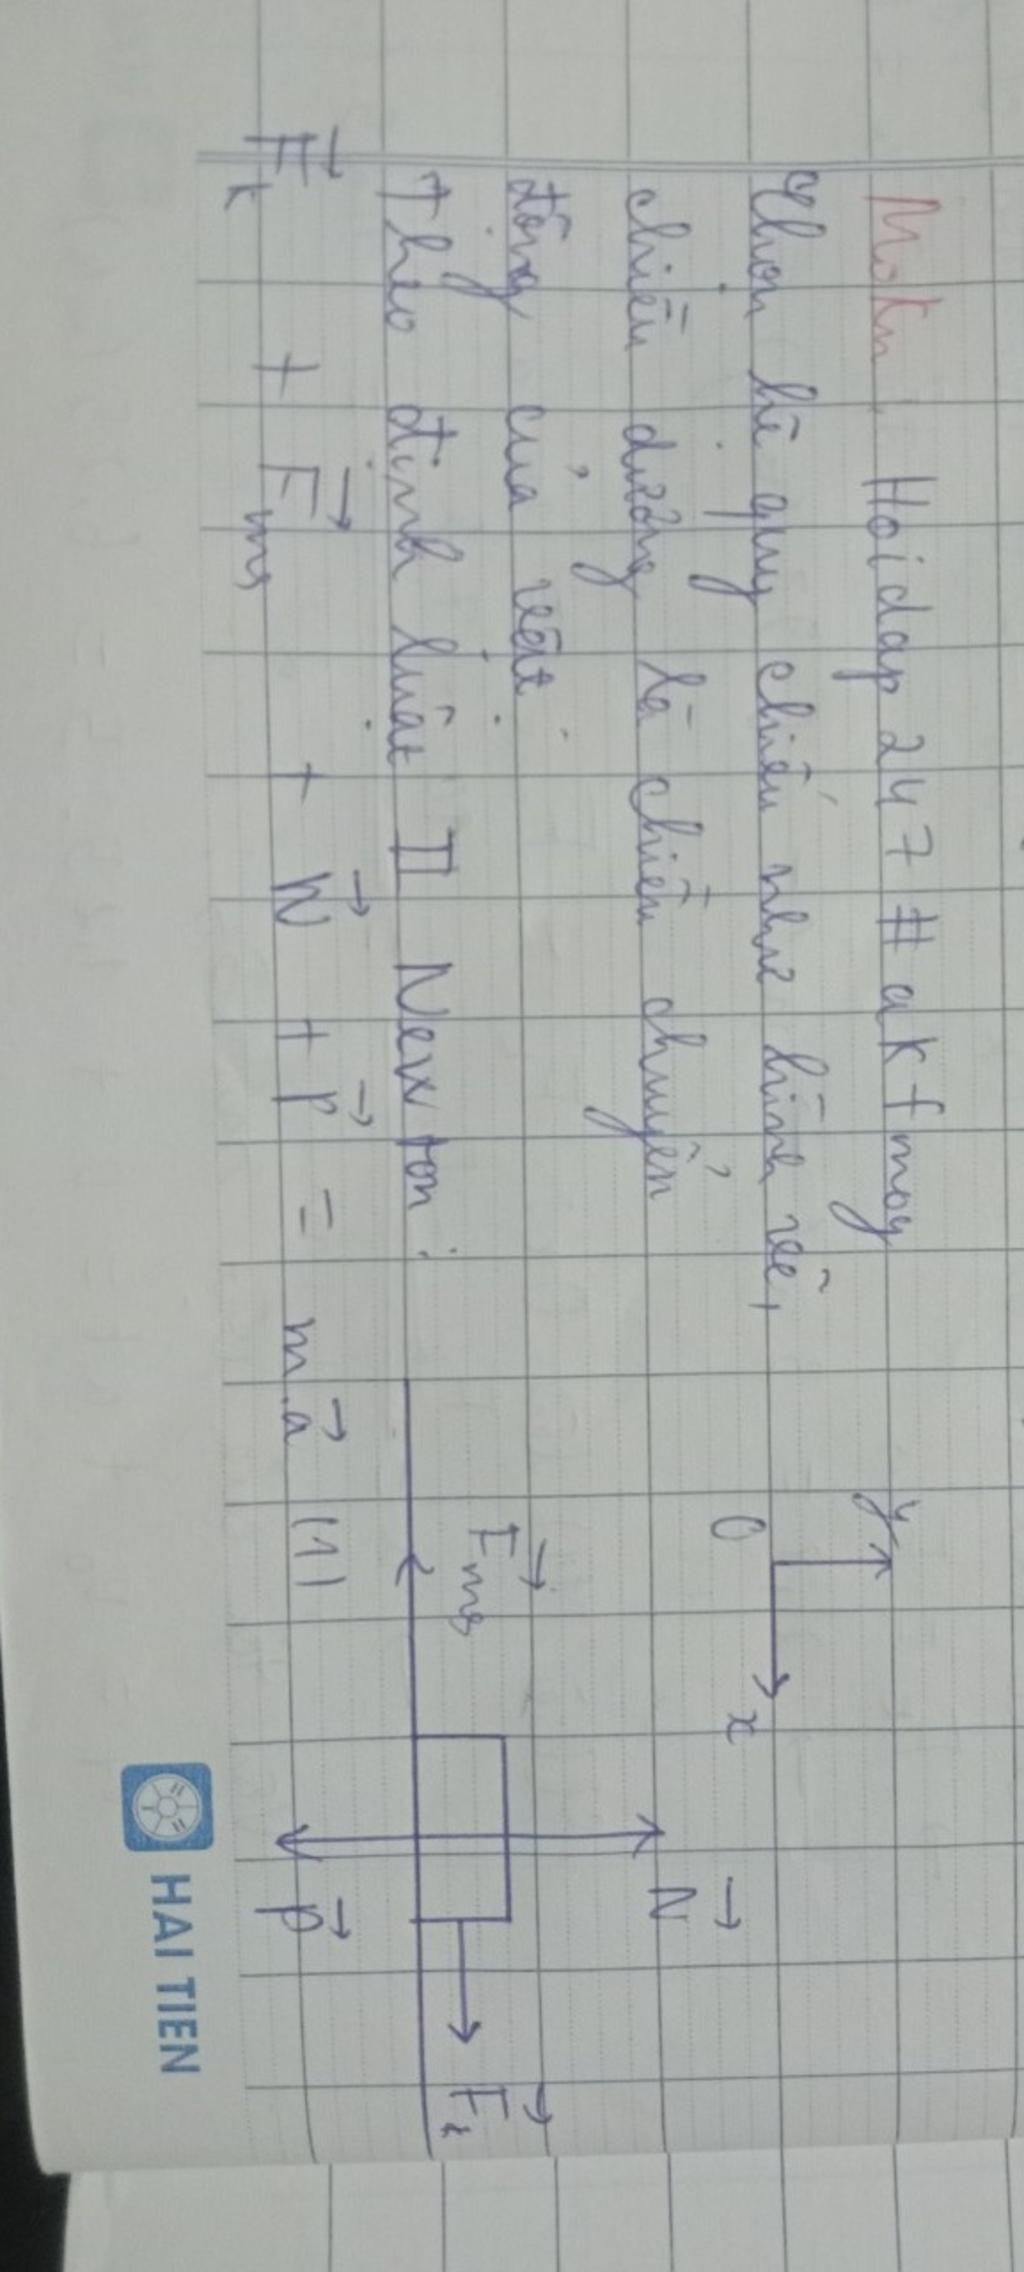 Moktn Hoidap 247 # akfmoy
Chọn hệ quy chiếu như hình vẽ,
chiều dương là chiều chuyển
động của vật.
Theo định luật II Newton:
F⃗k + F⃗ms + N⃗ + P⃗ = m.a⃗ (1)
y
O
x
N⃗
F⃗ms
F⃗k
P⃗
HAI TIEN